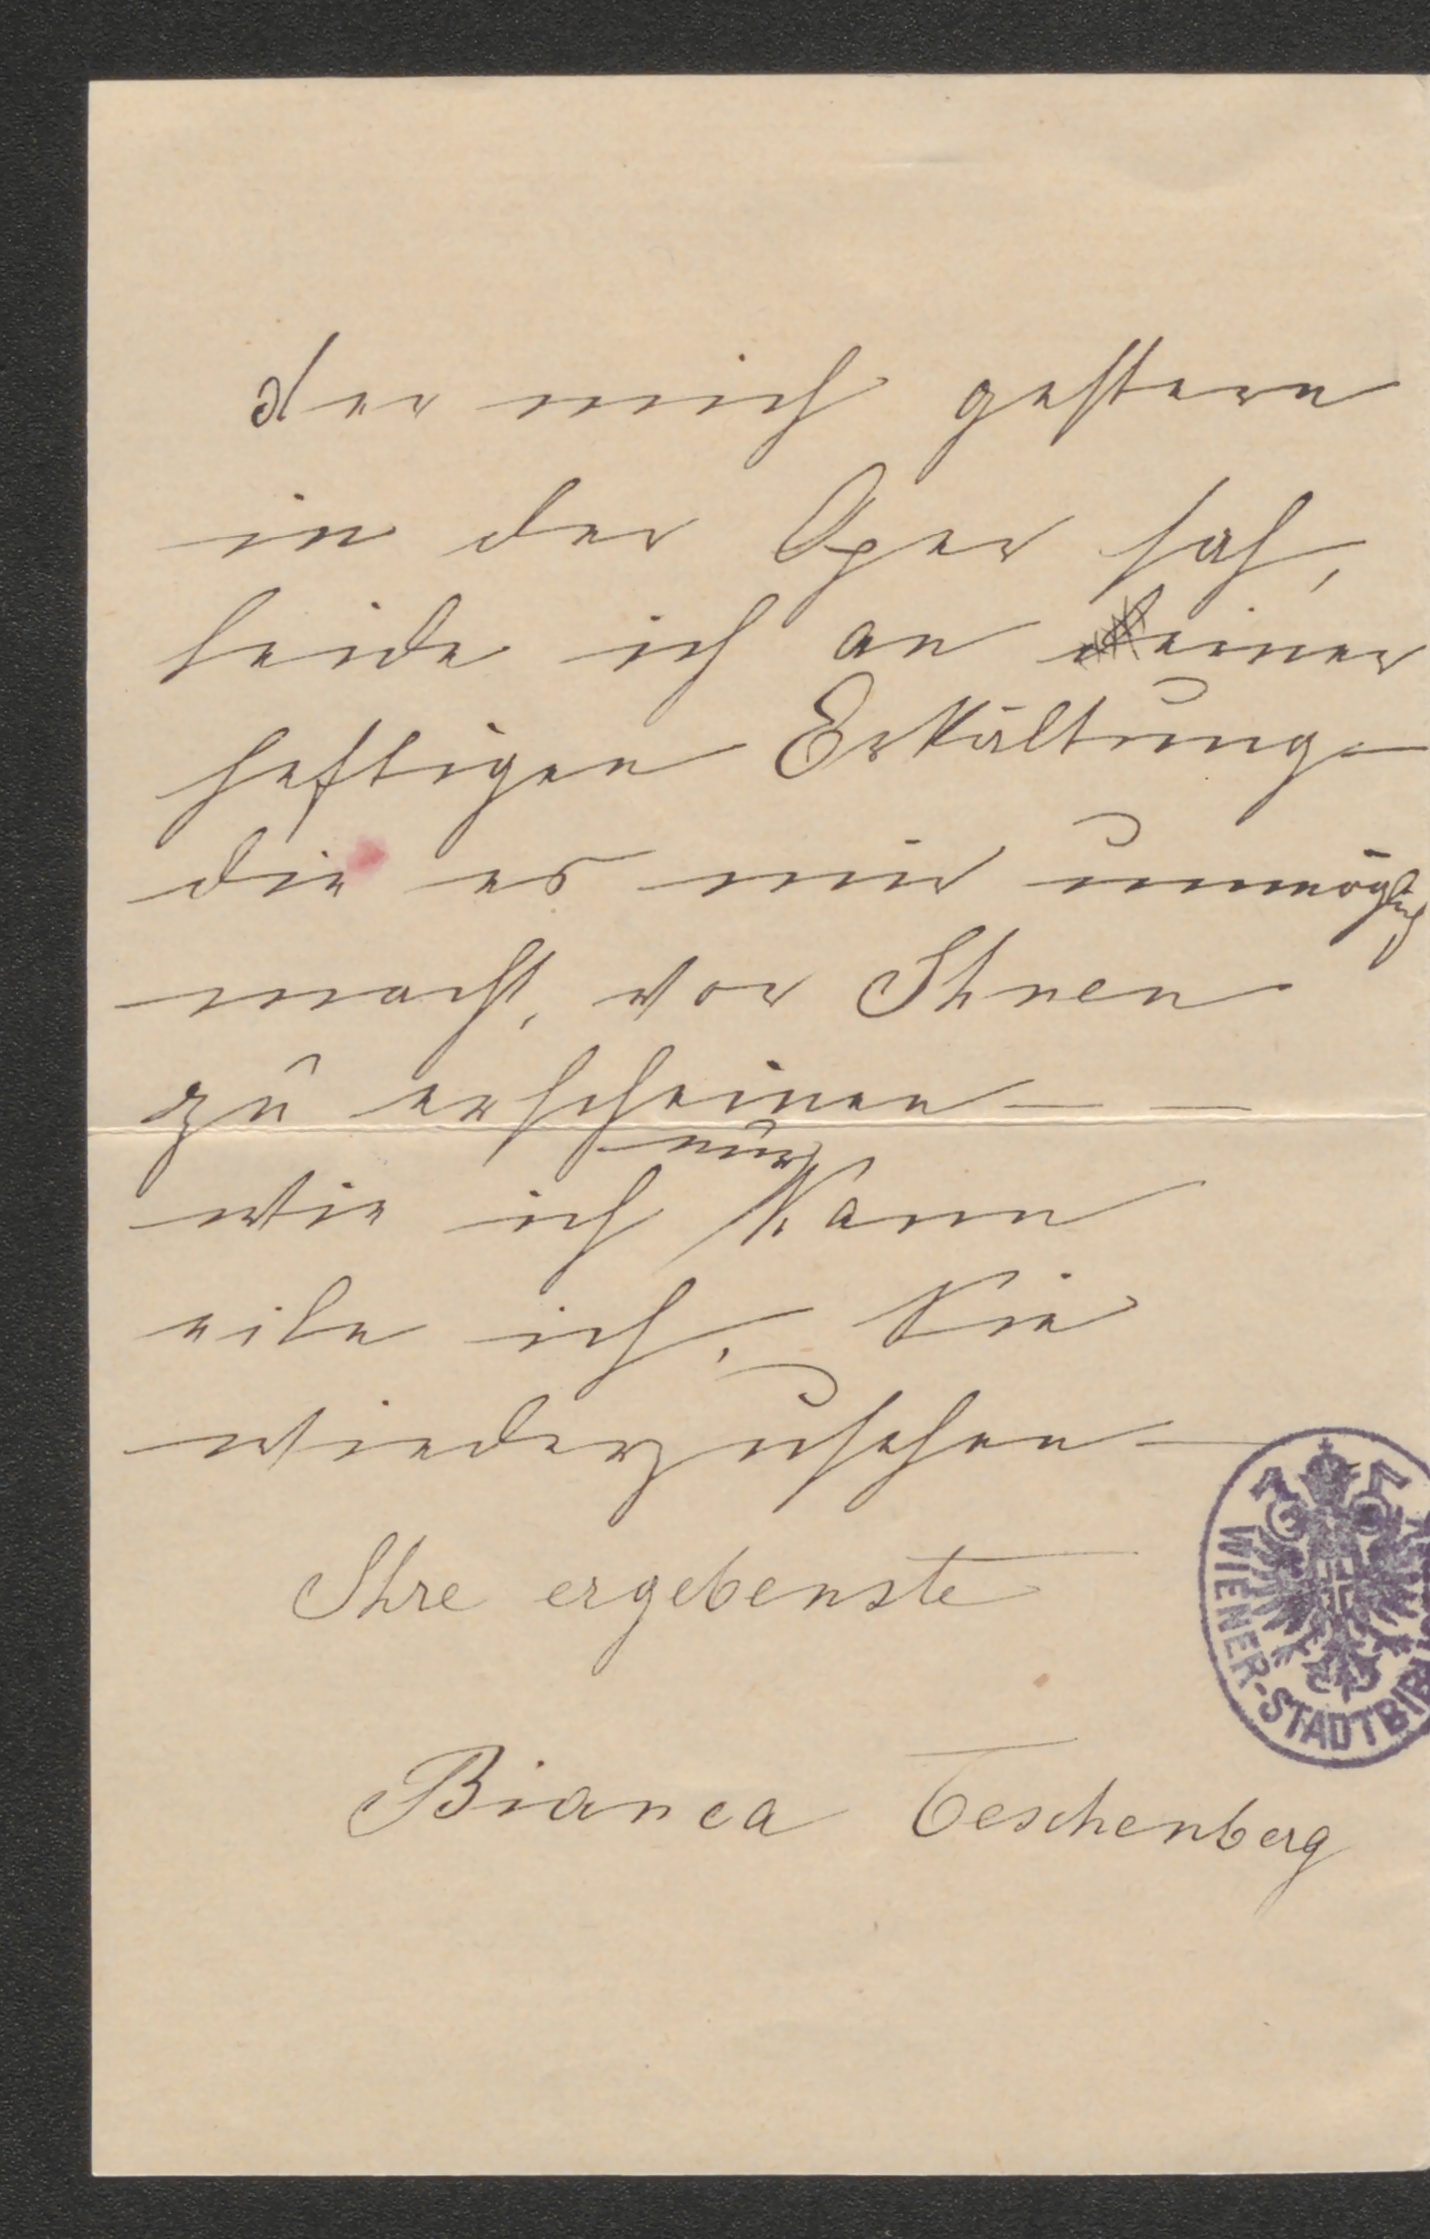 der mich gestern
in der Oper sah,
leide ich an einer
heftigen Erkältung
die es mir unmöglich
macht, vor Ihnen
zu erscheinen – –
nur
wie ich kann
eile ich, Sie
wiederzusehen –
Ihre ergebenste
Bianca Teschenberg
WIENER-STADTBIBL